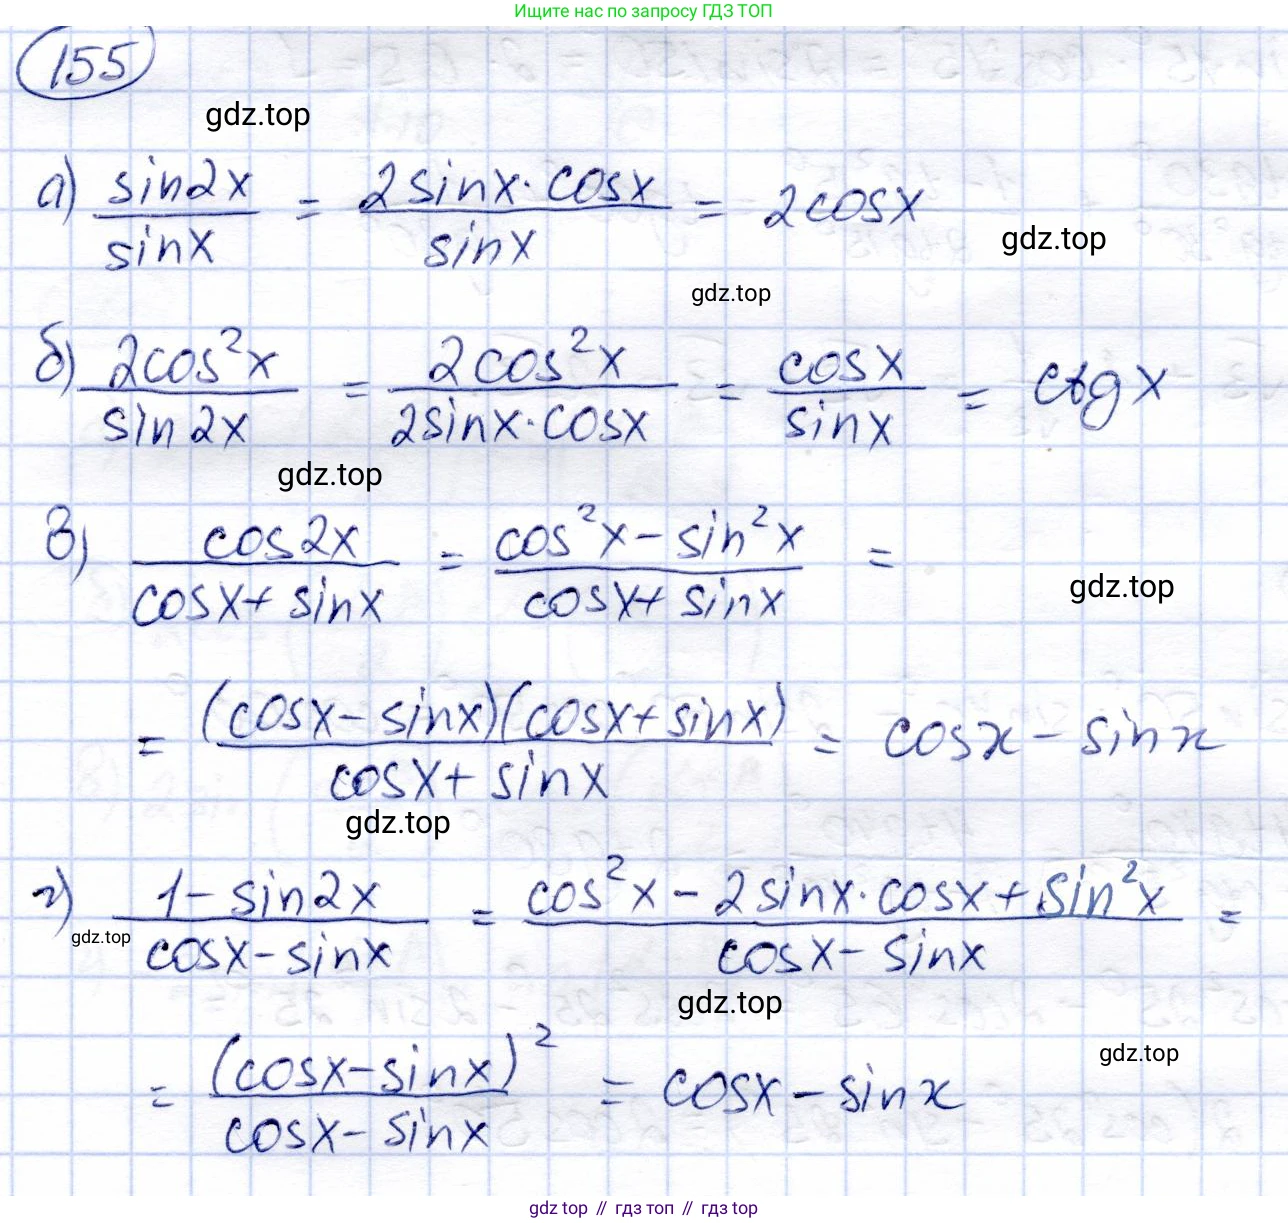 Ищите нас по запросу ГДЗ ТОП
155
gdz.top
а) sin2x / sinx = 2sinx·cosx / sinx = 2cosx
gdz.top
gdz.top
б) 2cos²x / sin2x = 2cos²x / 2sinx·cosx = cosx / sinx = ctgx
gdz.top
в) cos2x / cosx+sinx = cos²x-sin²x / cosx+sinx =
gdz.top
= (cosx-sinx)(cosx+sinx) / cosx+sinx = cosx-sinx
gdz.top
г) 1-sin2x / cosx-sinx = cos²x-2sinx·cosx+sin²x / cosx-sinx =
gdz.top
gdz.top
gdz.top
= (cosx-sinx)² / cosx-sinx = cosx-sinx
gdz top // гдз топ // гдз top